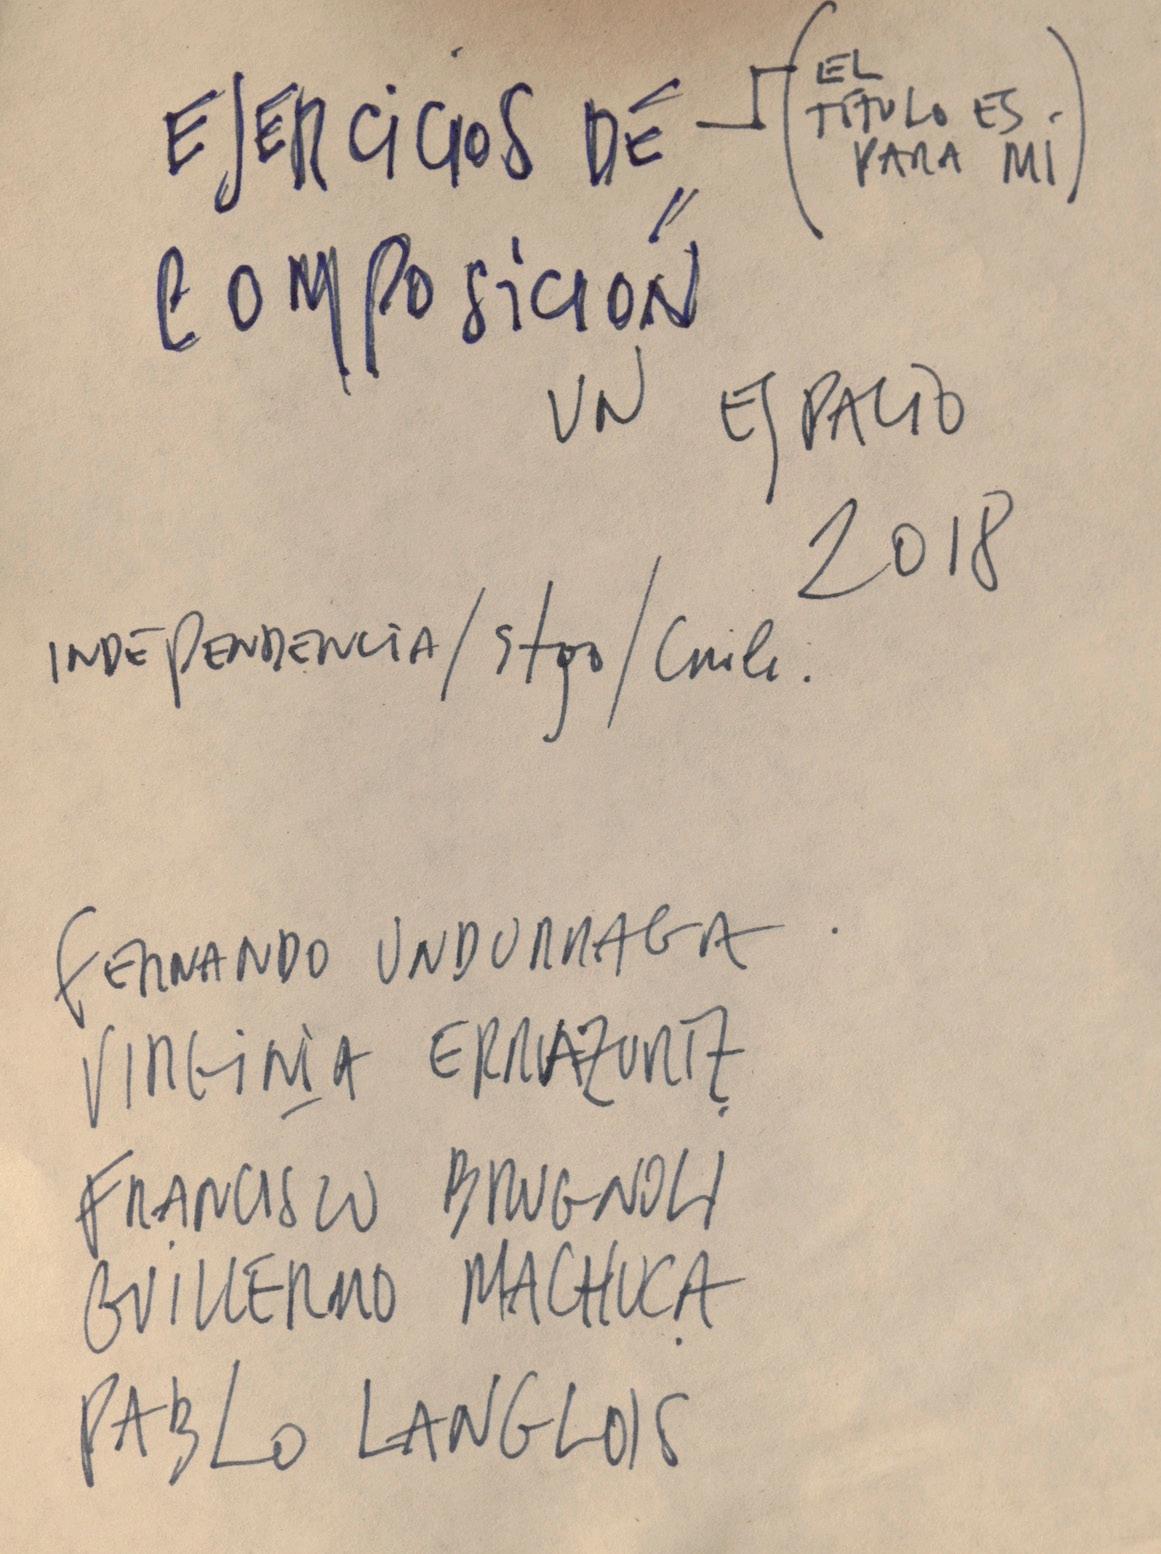 EJERCICIOS DE
(EL
TÍTULO ES
PARA MI)
COMPOSICIÓN
UN ESPACIO
2018
INDEPENDENCIA/Stgo/Chile.
FERNANDO UNDURRAGA.
VIRGINIA ERRAZURIZ
FRANCISCO BRUGNOLI
GUILLERMO MACHUCA
PABLO LANGLOIS